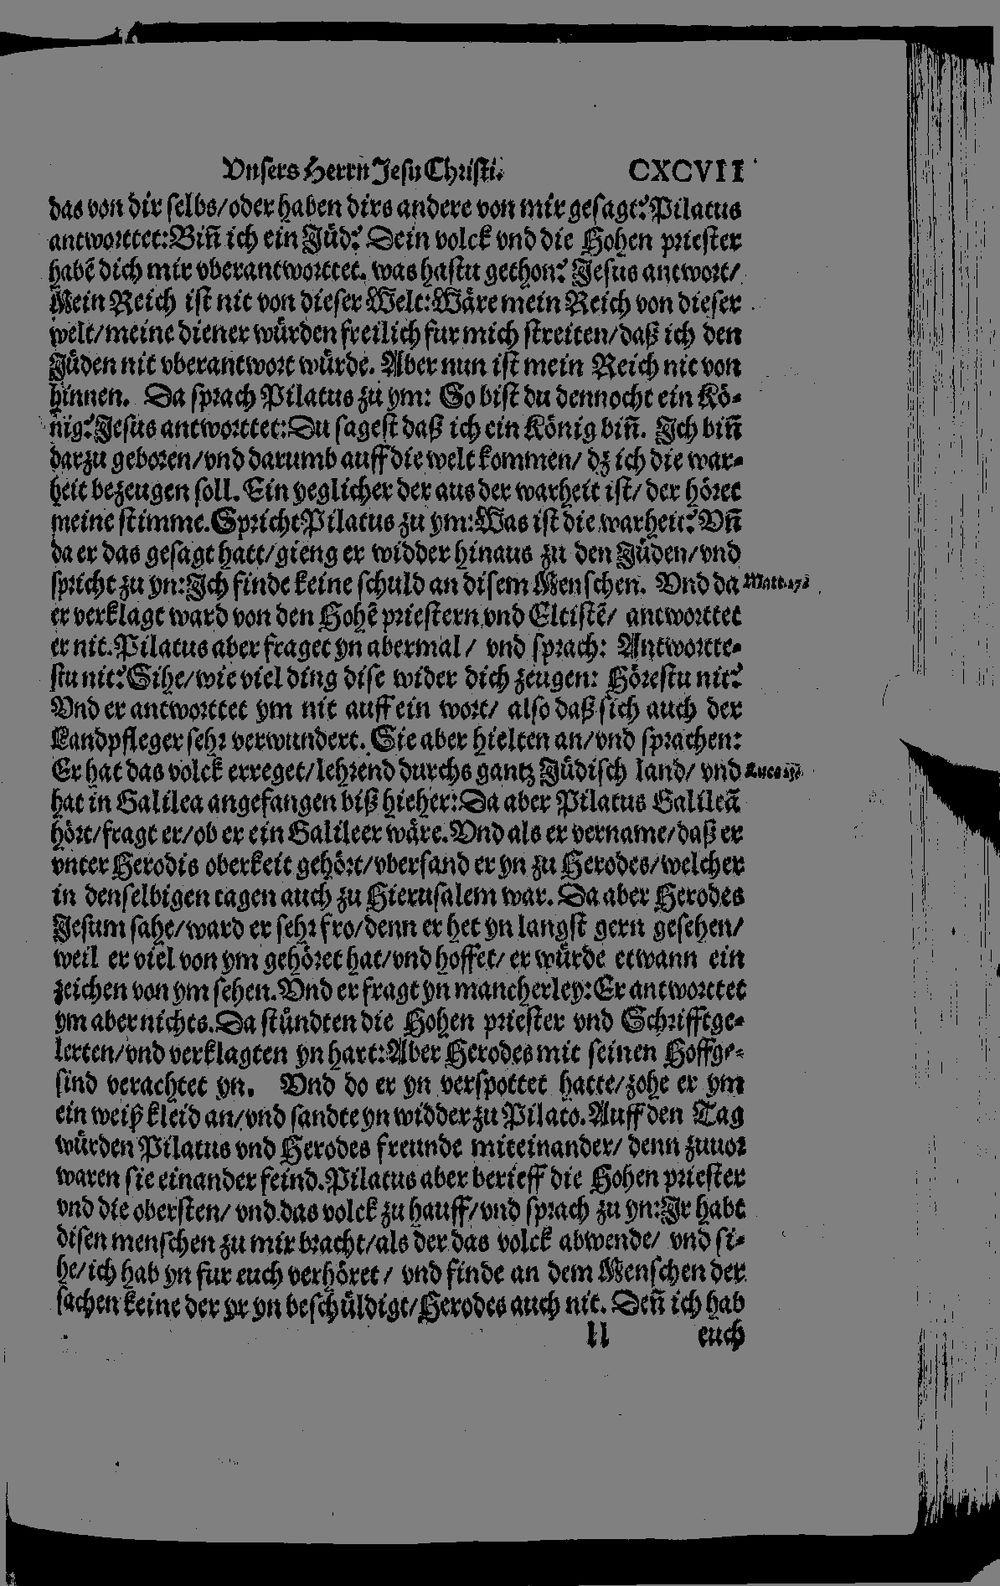 Vnsers Herrn Jesu Christi. CXCVII
das von dir selbs/oder haben dirs andere von mir gesagt? Pilatus
antworttet: Biñ ich ein Jüd? Dein volck vnd die Hohen priester
habē dich mir vberantworttet. was hastu gethon? Jesus antwort/
Mein Reich ist nit von dieser Welt: Wäre mein Reich von dieser
welt/meine diener würden freilich fur mich streiten/daß ich den
Jüden nit vberantwort würde. Aber nun ist mein Reich nit von
hinnen. Da sprach Pilatus zu ym: So bist du dennocht ein Kö-
nig? Jesus antworttet: Du sagest daß ich ein König biñ. Ich biñ
darzu geboren/vnd darumb auff die welt kommen/ dz ich die war-
heit bezeugen soll. Ein yeglicher der aus der warheit ist/ der höret
meine stimme. Spricht Pilatus zu ym: Was ist die warheit? Vñ
da er das gesagt hatt/gieng er widder hinaus zu den Jüden/vnd
spricht zu yn: Ich finde keine schuld an disem Menschen. Vnd da
er verklagt ward von den Hohē priestern vnd Eltistē/ antworttet
er nit. Pilatus aber fraget yn abermal/ vnd sprach: Antwortte-
stu nit? Sihe/wie viel ding dise wider dich zeugen: Hörestu nit?
Vnd er antworttet ym nit auff ein wort/ also daß sich auch der
Landpfleger sehr verwundert. Sie aber hielten an/vnd sprachen:
Er hat das volck erreget/lehrend durchs gantz Jüdisch land/ vnd
hat in Galilea angefangen biß hieher: Da aber Pilatus Galileā
hört/fragt er/ob er ein Galileer wäre. Vnd als er vername/daß er
vnter Herodis oberkeit gehört/vbersand er yn zu Herodes/welcher
in denselbigen tagen auch zu Hierusalem war. Da aber Herodes
Jesum sahe/ward er sehr fro/denn er het yn langst gern gesehen/
weil er viel von ym gehöret hat/vnd hoffet/ er würde etwann ein
zeichen von ym sehen. Vnd er fragt yn mancherley: Er antworttet
ym aber nichts. Da stündten die Hohen priester vnd Schrifftge-
lerten/vnd verklagten yn hart: Aber Herodes mit seinen Hoffge-
sind verachtet yn. Vnd do er yn verspottet hatte/zohe er ym
ein weiß kleid an/vnd sandte yn widder zu Pilato. Auff den Tag
würden Pilatus vnd Herodes freunde miteinander/ denn zuuor
waren sie einander feind. Pilatus aber berieff die Hohen priester
vnd die obersten/ vnd das volck zu hauff/vnd sprach zu yn: Ir habt
disen menschen zu mir bracht/als der das volck abwende/ vnd si-
he/ich hab yn fur euch verhöret/ vnd finde an dem Menschen der
sachen keine der yr yn beschüldigt/Herodes auch nit. Deñ ich hab
ll euch